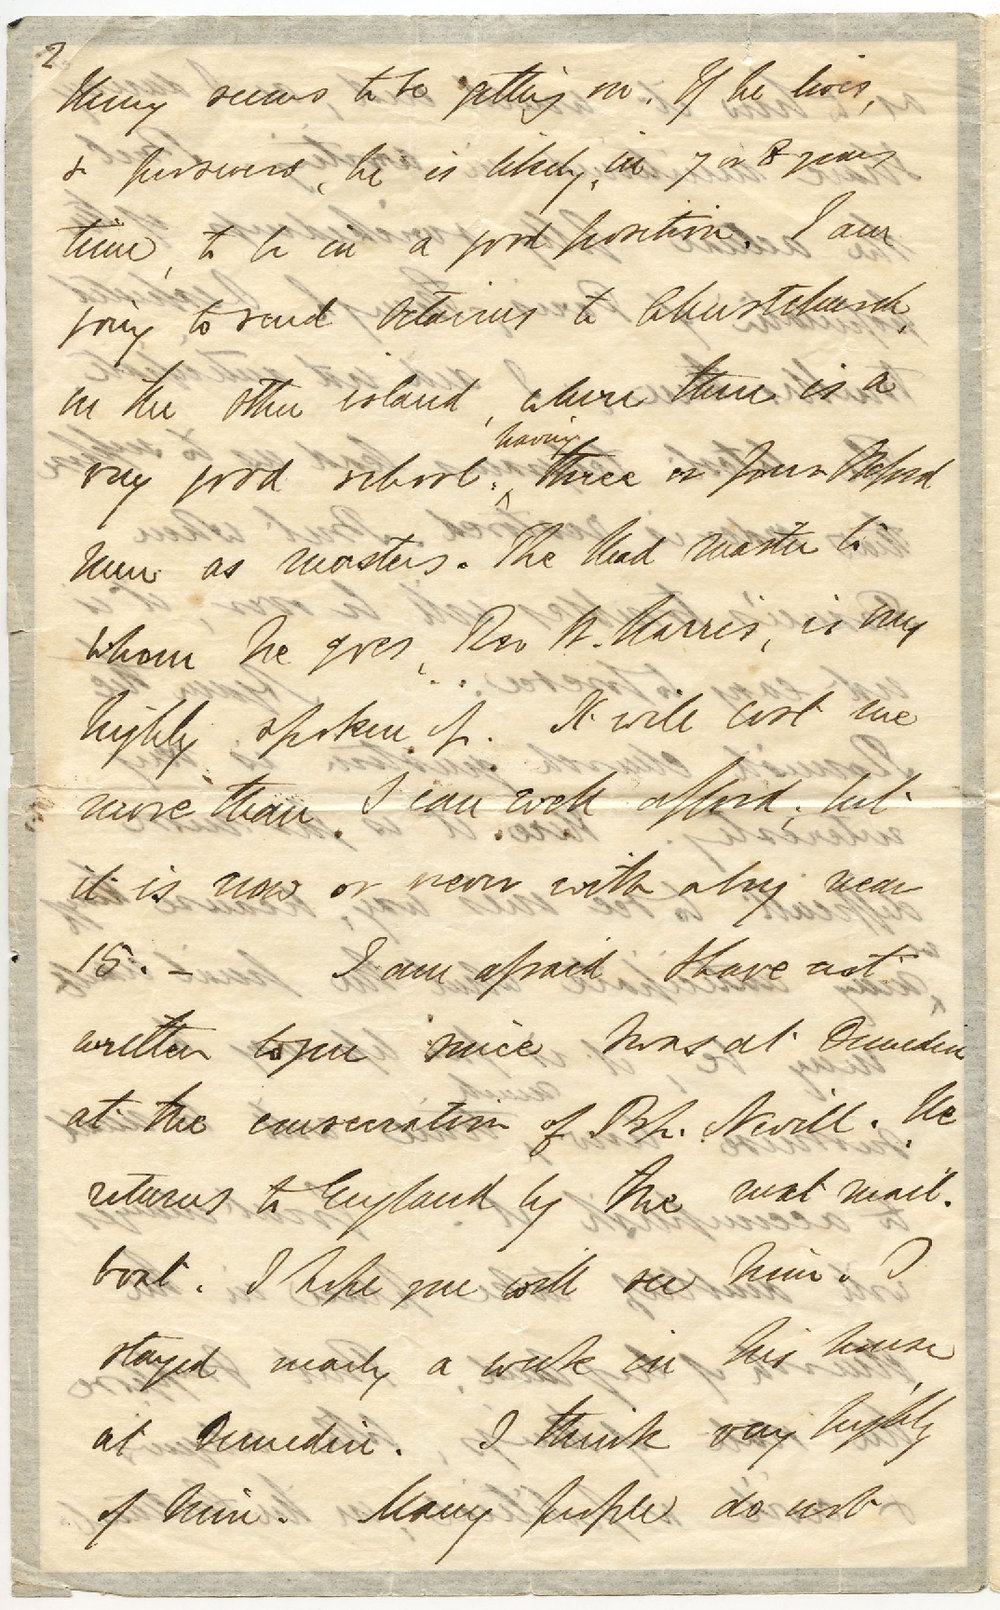 2
Henry seems to be getting on. If he lives,
& perseveres, he is likely, in 7 or 8 years
time, to be in a good position. I am
going to send Octavius to Christchurch,
in the other island, where there is a
very good school, having three or four Oxford
men as masters. The Head master to
whom he goes, Rev W. Harris, is very
highly spoken of. It will cost me
more than I can well afford; but
it is now or never with a boy near
15. – I am afraid I have not
written to you since I was at Dunedin
at the consecration of Bp. Nevill. He
returns to England by the next mail-
boat. I hope you will see him. I
stayed nearly a week in his house
at Dunedin. I think very highly
of him. Many people do not